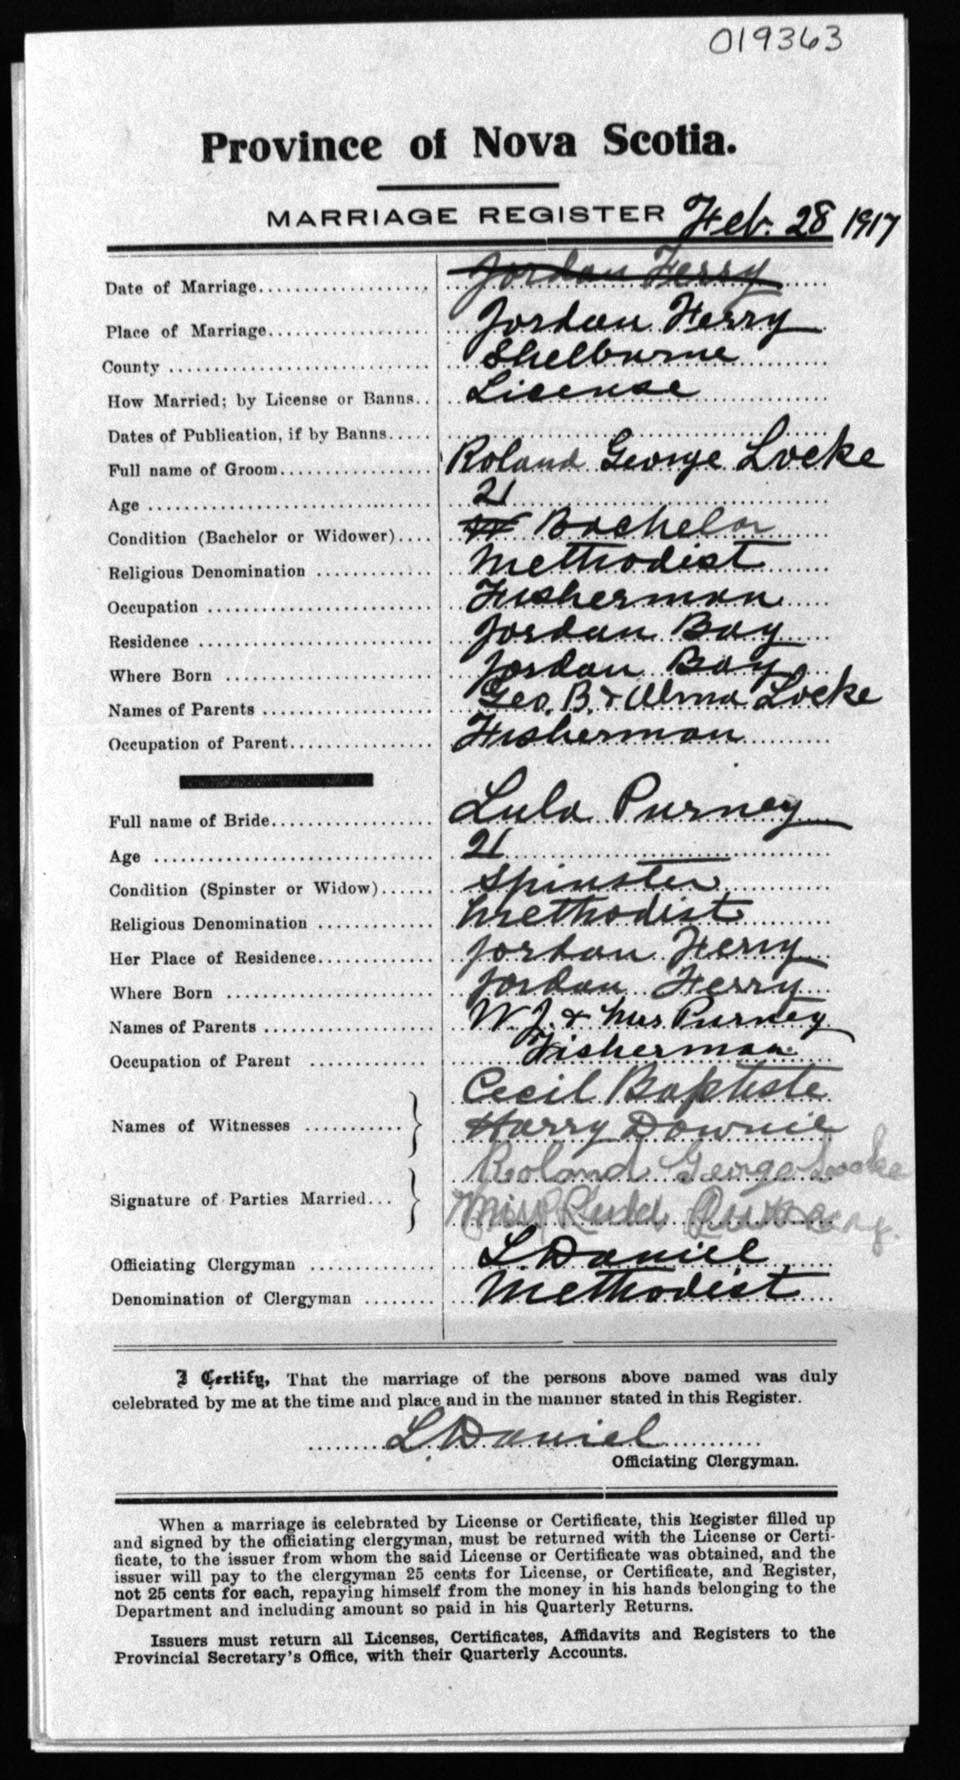 019363
Province of Nova Scotia.
MARRIAGE REGISTER Feb. 28 1917
Date of Marriage.................... Jordan Ferry
Place of Marriage................... Jordan Ferry
County ............................. Shelburne
How Married; by License or Banns.. License
Dates of Publication, if by Banns.....
Full name of Groom................. Roland George Locke
Age ............................... 21
Condition (Bachelor or Widower).... W Bachelor
Religious Denomination ............. Methodist
Occupation ......................... Fisherman
Residence .......................... Jordan Bay
Where Born ......................... Jordan Bay
Names of Parents ................... Geo. B. & Alma Locke
Occupation of Parent................ Fisherman
Full name of Bride.................. Lula Purney
Age ............................... 21
Condition (Spinster or Widow)...... Spinster
Religious Denomination ............. Methodist
Her Place of Residence............. Jordan Ferry
Where Born ......................... Jordan Ferry
Names of Parents ................... W. J. & Mrs Purney
Occupation of Parent ............... Fisherman
Cecil Baptiste
Names of Witnesses ........... } Harry Downie
Roland George Locke
Signature of Parties Married... } Miss
Officiating Clergyman .............. L. Daniel
Denomination of Clergyman ........ Methodist
I Certify, That the marriage of the persons above named was duly
celebrated by me at the time and place and in the manner stated in this Register.
L. Daniel
Officiating Clergyman.
When a marriage is celebrated by License or Certificate, this Register filled up
and signed by the officiating clergyman, must be returned with the License or Certi-
ficate, to the issuer from whom the said License or Certificate was obtained, and the
issuer will pay to the clergyman 25 cents for License, or Certificate, and Register,
not 25 cents for each, repaying himself from the money in his hands belonging to the
Department and including amount so paid in his Quarterly Returns.
Issuers must return all Licenses, Certificates, Affidavits and Registers to the
Provincial Secretary's Office, with their Quarterly Accounts.